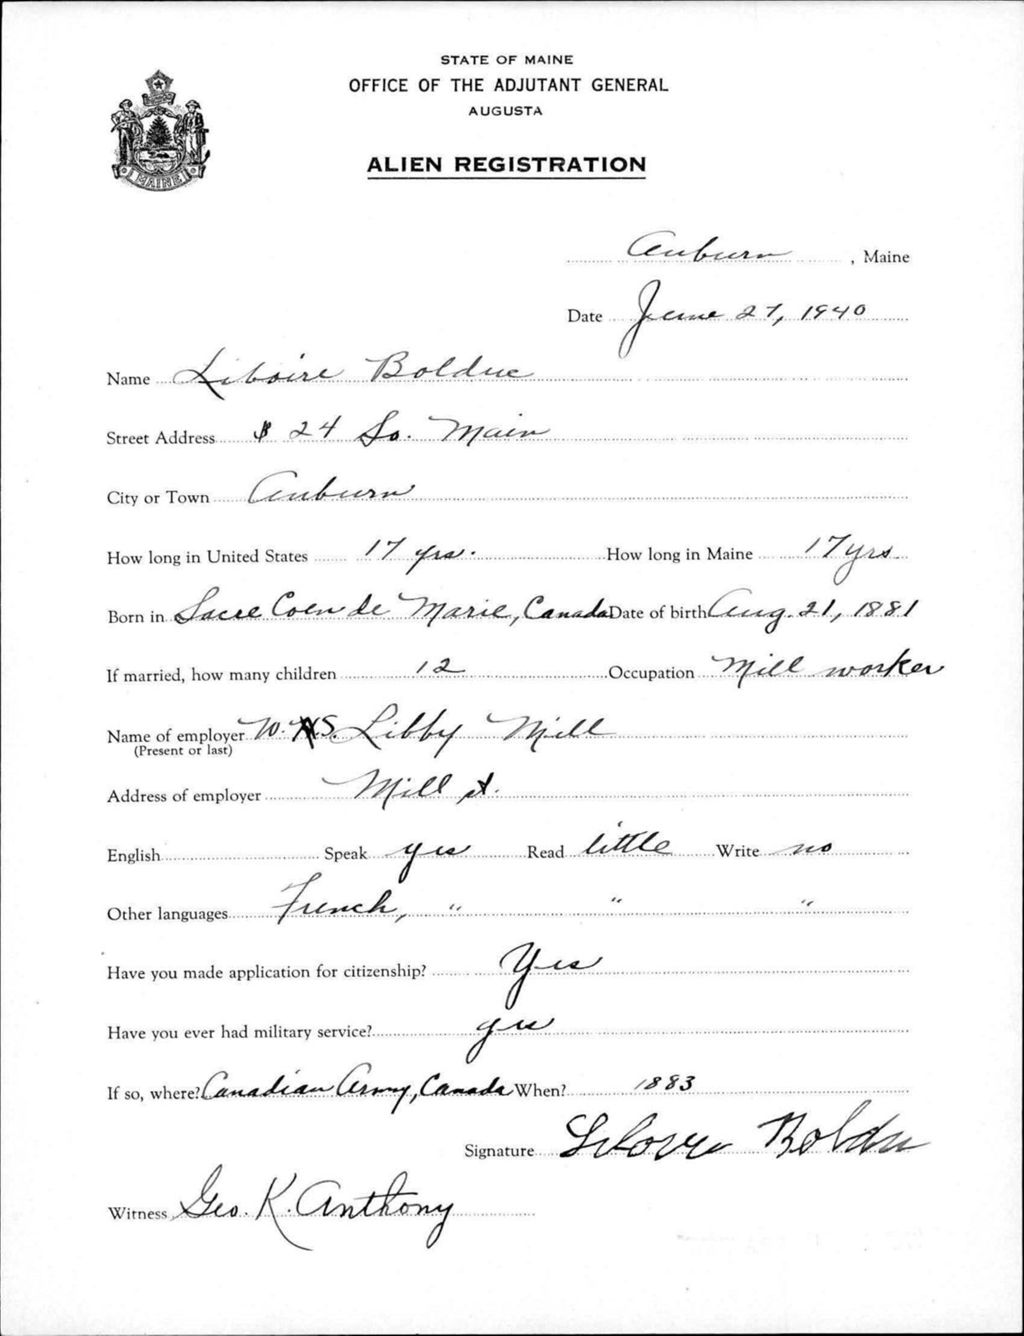 STATE OF MAINE
OFFICE OF THE ADJUTANT GENERAL
AUGUSTA
ALIEN REGISTRATION
MAINE
Auburn, Maine
Date June 27, 1940
Name Liboire Bolduc
Street Address 24 So. Main
City or Town Auburn
How long in United States 17 yrs. How long in Maine 17 yrs
Born in Sacre Coeu de Marie, Canada Date of birth Aug. 21, 1881
If married, how many children 12 Occupation Mill worker
Name of employer W. S. Libby Mill
(Present or last)
Address of employer Mill st.
English Speak yes Read little Write no
Other languages French, " " "
Have you made application for citizenship? Yes
Have you ever had military service? yes
If so, where? Canadian Army, Canada When? 1883
Signature Boldu
Witness Geo. K. Anthony